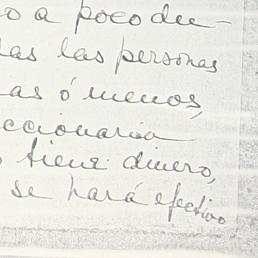 o a poco du-
as las personas
as ó menos,
ccionaria
tiene dinero,
se hará efectivo